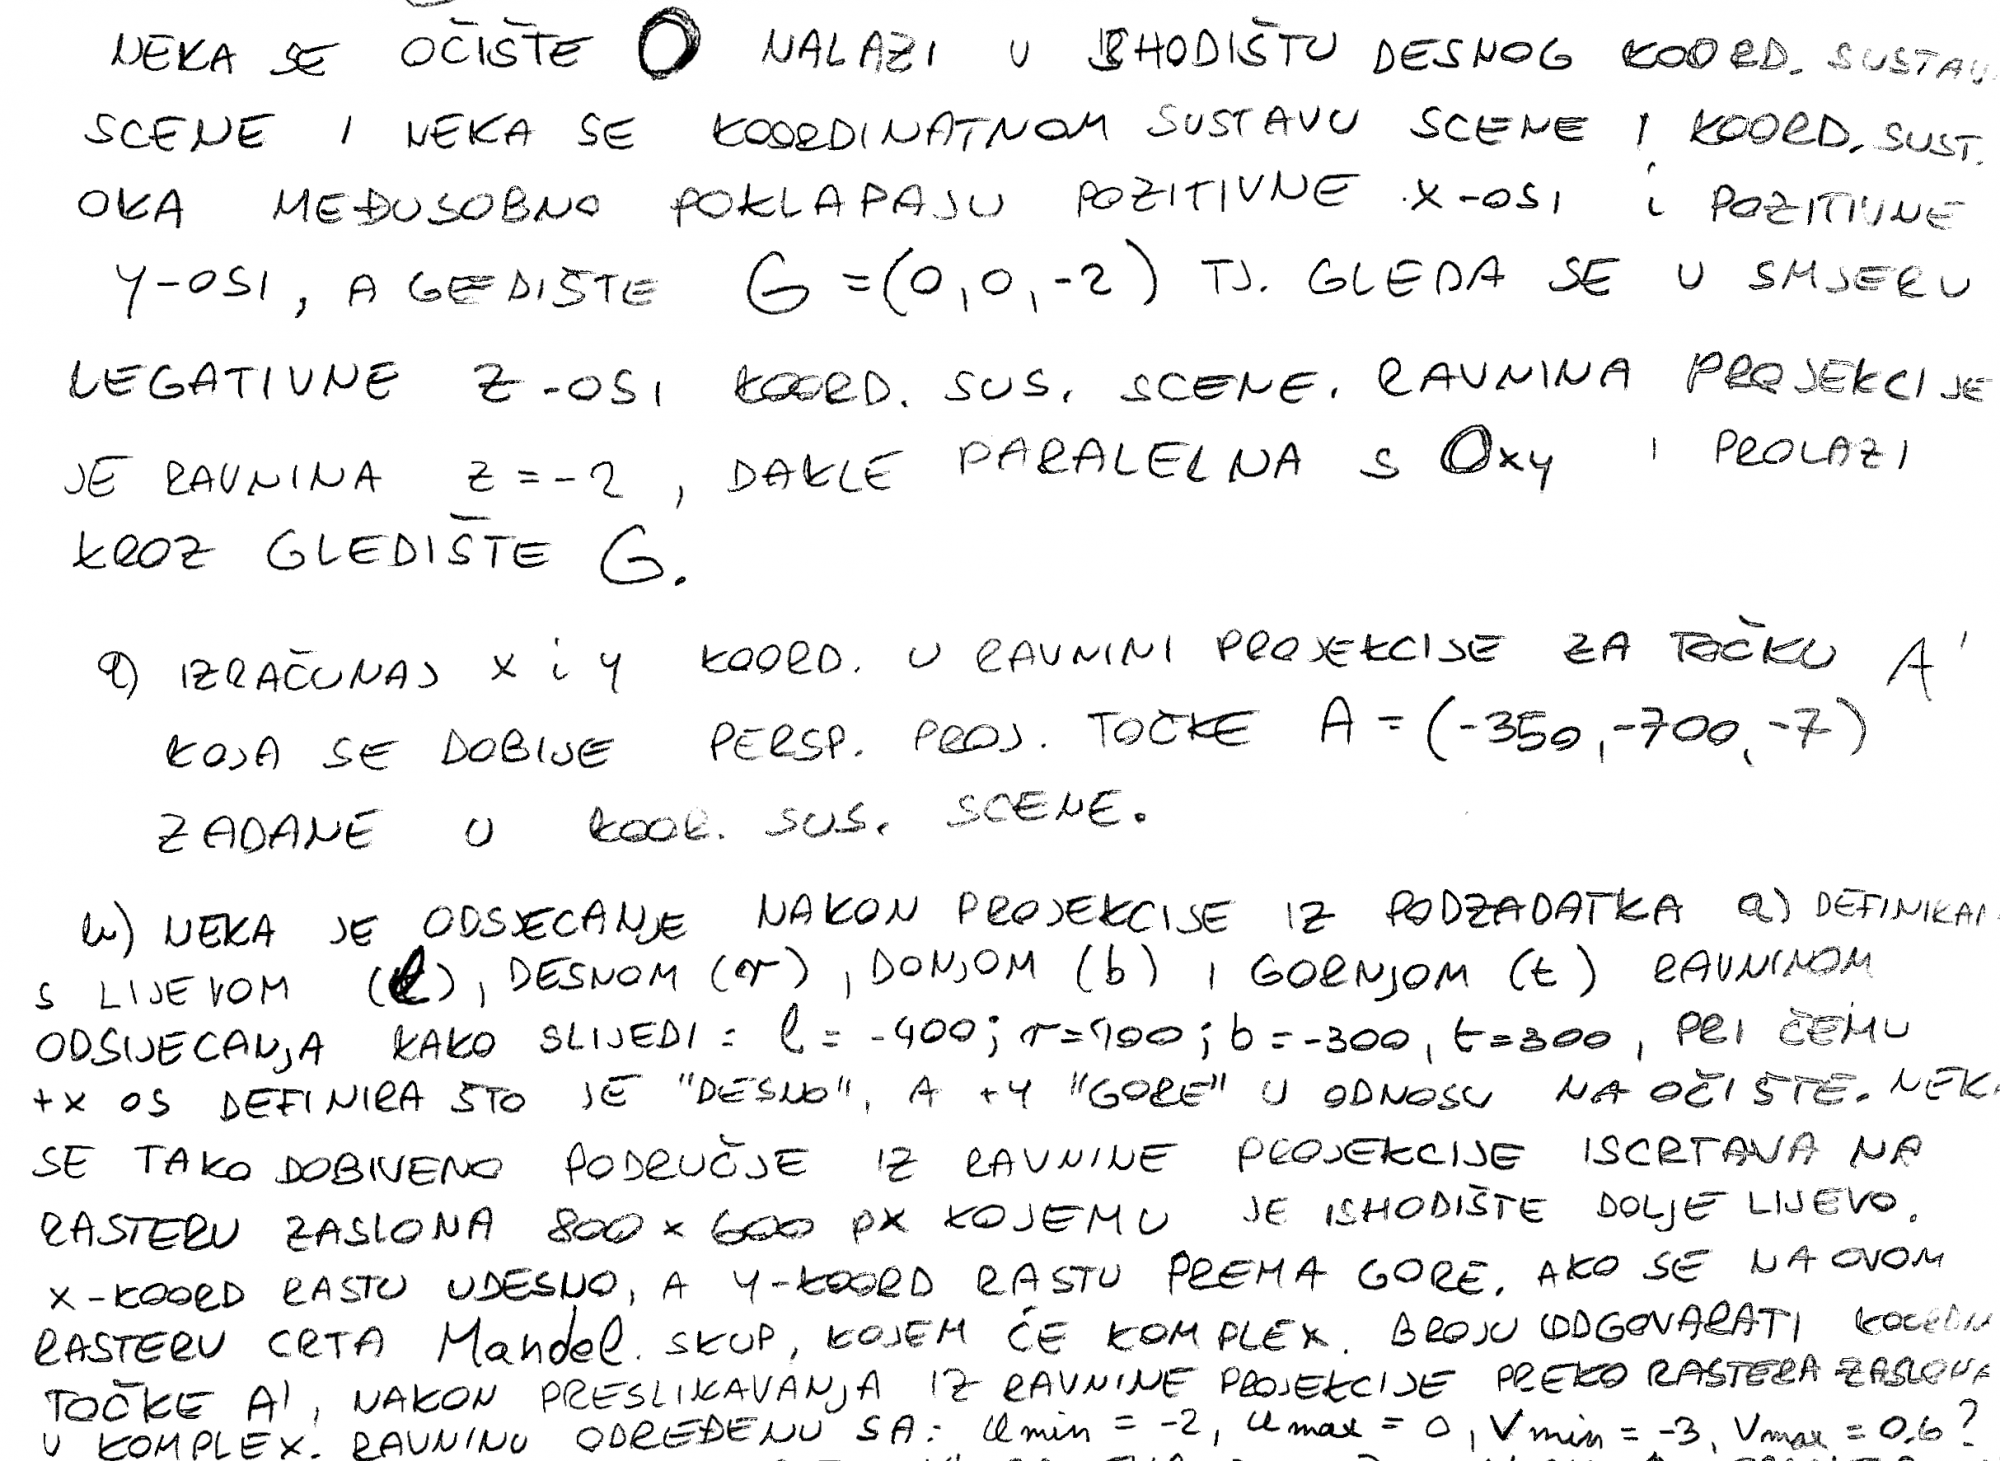 NEKA SE OČIŠTE O NALAZI U ISHODIŠTU DESNOG KOORD. SUSTAV
SCENE I NEKA SE KOORDINATNOM SUSTAVU SCENE I KOORD. SUST.
OKA MEĐUSOBNO POKLAPAJU POZITIVNE X-OSI i POZITIVNE
Y-OSI, A GEDIŠTE G = (0,0,-2) TJ. GLEDA SE U SMJERU
NEGATIVNE Z-OSI KOORD. SUS. SCENE. RAVNINA PROJEKCIJE
JE RAVNINA Z = -2, DAKLE PARALELNA S Oxy I PROLAZI
KROZ GLEDIŠTE G.
a) IZRAČUNAJ X i Y KOORD. U RAVNINI PROJEKCIJE ZA TOČKU A'
KOJA SE DOBIJE PERSP. PROJ. TOČKE A = (-350, -700, -7)
ZADANE U KOOR. SUS. SCENE.
b) NEKA JE ODSJECANJE NAKON PROJEKCIJE IZ PODZADATKA a) DEFINIRA
S LIJEVOM (l), DESNOM (r), DONJOM (b) I GORNJOM (t) RAVNINOM
ODSIJECANJA KAKO SLIJEDI: l = -400; r=400; b = -300, t=300, PRI ČEMU
+X OS DEFINIRA ŠTO JE "DESNO", A +Y "GORE" U ODNOSU NA OČIŠTE. NEK
SE TAKO DOBIVENO PODRUČJE IZ RAVNINE PROJEKCIJE ISCRTAVA NA
RASTERU ZASLONA 800 x 600 px KOJEMU JE ISHODIŠTE DOLJE LIJEVO.
X-KOORD RASTU UDESNO, A Y-KOORD RASTU PREMA GORE. AKO SE NA OVOM
RASTERU CRTA Mandel. SKUP, KOJEM ĆE KOMPLEX. BROJU ODGOVARATI
TOČKE A', NAKON PRESLIKAVANJA IZ RAVNINE PROJEKCIJE PREKO RASTERA ZASLONA
U KOMPLEX. RAVNINU ODREĐENU SA: umin = -2, umax = 0, Vmin = -3, Vmax = 0.6?